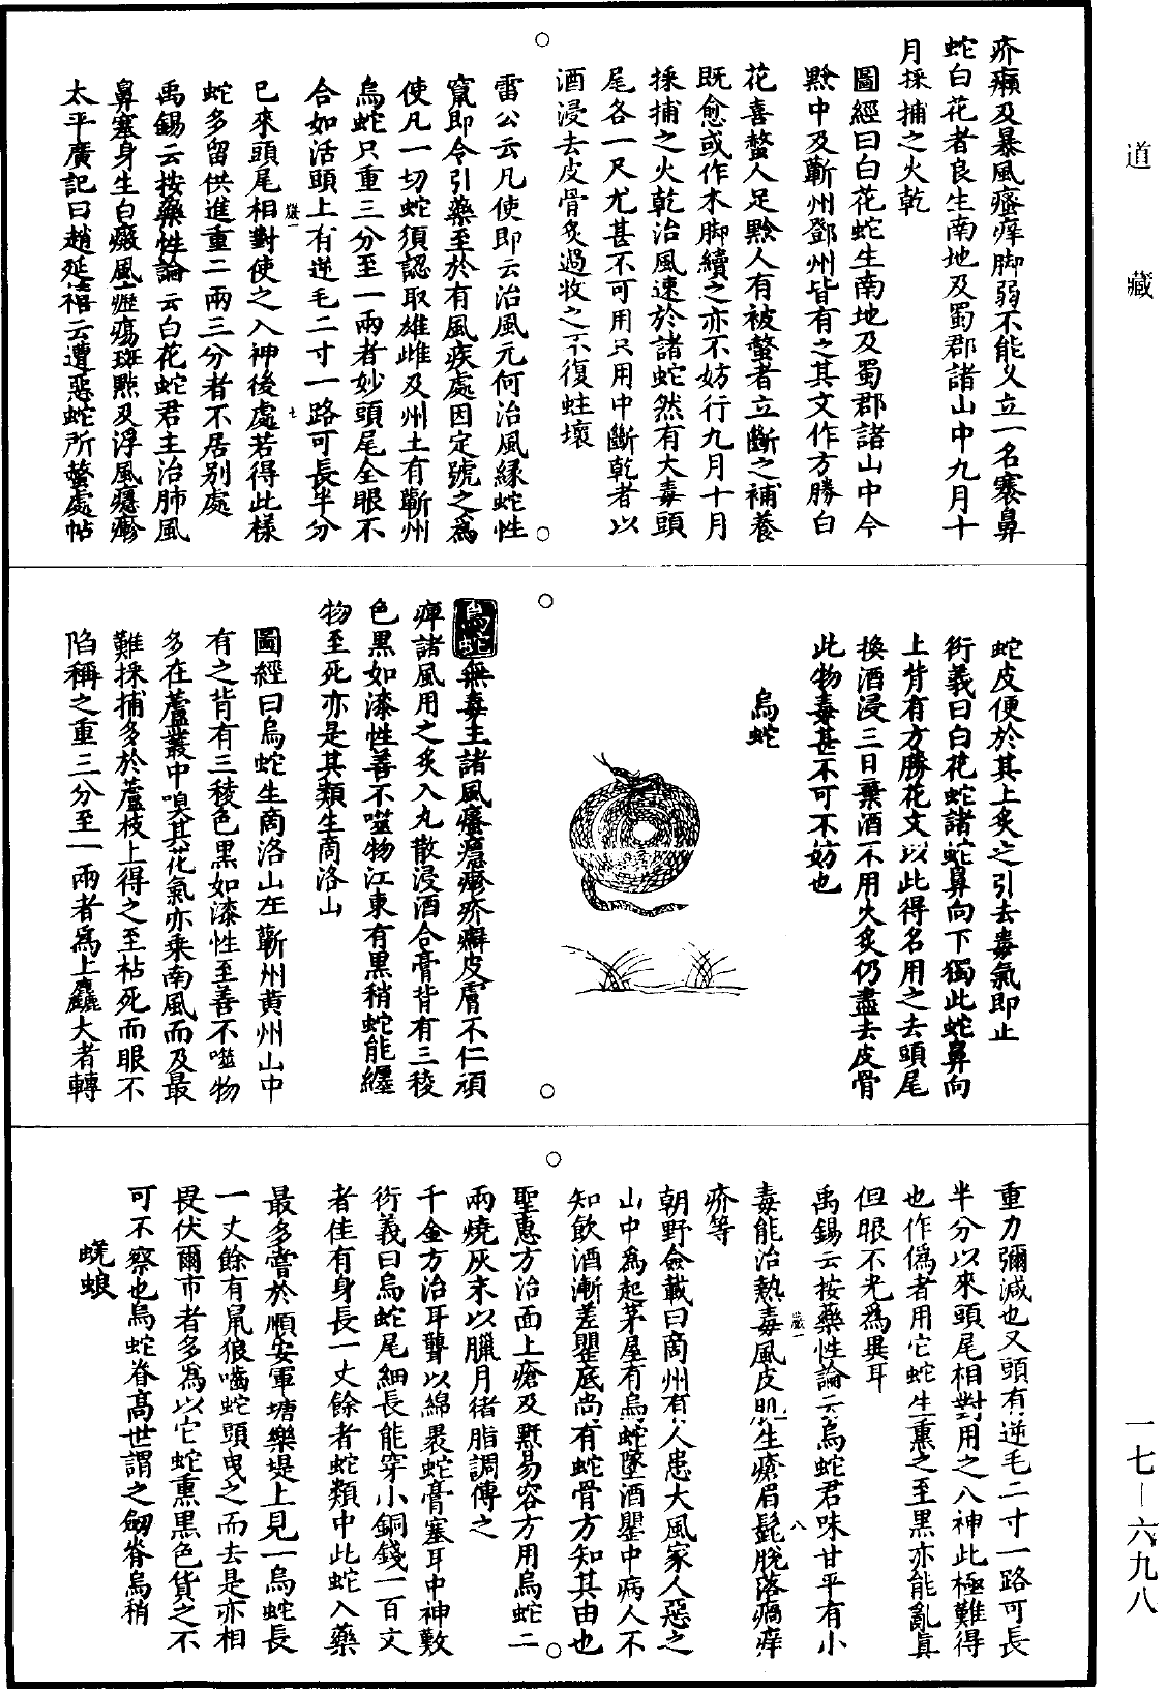 道藏
疥癩及暴風瘙痒脚弱不能乆立一名褰鼻
蛇白花者良生南地及蜀郡諸山中九月十
月採捕之火乾
圖經曰白花蛇生南地及蜀郡諸山中今
黔中及蘄州鄧州皆有之其文作方勝白
花喜螫人足黔人有被螫者立斷之補養
既愈或作木脚續之亦不妨行九月十月
採捕之火乾治風速於諸蛇然有大毒頭
尾各一尺尤甚不可用只用中斷乾者以
酒浸去皮骨炙過收之不復蛀壞
雷公云凡使即云治風元何治風緣蛇性
竄即令引藥至於有風疾處因定號之爲
使凡一切蛇須認取雄雌及州土有蘄州
烏蛇只重三分至一兩者妙頭尾全眼不
合如活頭上有逆毛二寸一路可長半分
已來頭尾相對使之入神後處若得此樣
蛇多留供進重二兩三分者不居别處
禹錫云按藥性論云白花蛇君主治肺風
鼻塞身生白癜風癧瘍斑㸃及浮風癮瘮
太平廣記曰趙延禧云遭惡蛇所螫處帖
蛇皮便於其上炙之引去毒氣即止
衍義曰白花蛇諸蛇鼻向下獨此蛇鼻向
上背有方勝花文以此得名用之去頭尾
換酒浸三日棄酒不用火炙仍盡去皮骨
此物毒甚不可不妨也
烏蛇
烏蛇無毒主諸風瘙癮瘮疥癬皮膚不仁頑
痺諸風用之炙入丸散浸酒合膏背有三稜
色黑如漆性善不噬物江東有黑稍蛇能纒
物至死亦是其類生商洛山
圖經曰烏蛇生商洛山在蘄州黄州山中
有之背有三稜色黑如漆性至善不噬物
多在蘆叢中嗅其花氣亦乘南風而及最
難採捕多於蘆枝上得之至枯死而眼不
陷稱之重三分至一兩者爲上麤大者轉
重力彌減也又頭有逆毛二寸一路可長
半分以來頭尾相對用之入神此極難得
也作僞者用它蛇生熏之至黑亦能亂真
但眼不光爲異耳
禹錫云按藥性論云烏蛇君味甘平有小
毒能治熱毒風皮肌生瘡眉髭脫落㾷痒
疥等
朝野僉載曰商州有人患大風家人惡之
山中爲起茅屋有烏蛇墜酒罌中病人不
知飲酒漸差罌底尚有蛇骨方知其由也
聖惠方治面上瘡及䵟易容方用烏蛇二
兩燒灰末以臘月猪脂調傅之
千金方治耳聾以綿裹蛇膏塞耳中神數
衍義曰烏蛇尾細長能穿小銅錢一百文
者佳有身長一丈餘者蛇類中此蛇入藥
最多嘗於順安軍塘濼堤上見一烏蛇長
一丈餘有鼠狼嚙蛇頭曳之而去是亦相
畏伏爾市者多爲以它蛇熏黑色貨之不
可不察也烏蛇脊高世謂之劒脊烏稍
蜣蜋
一七—六九八